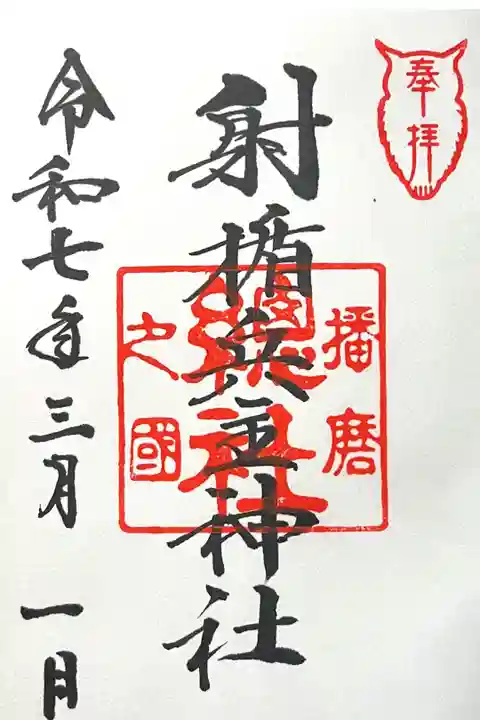 奉拝
射楯兵主神社
播磨
總社
之國
令和七年三月一日